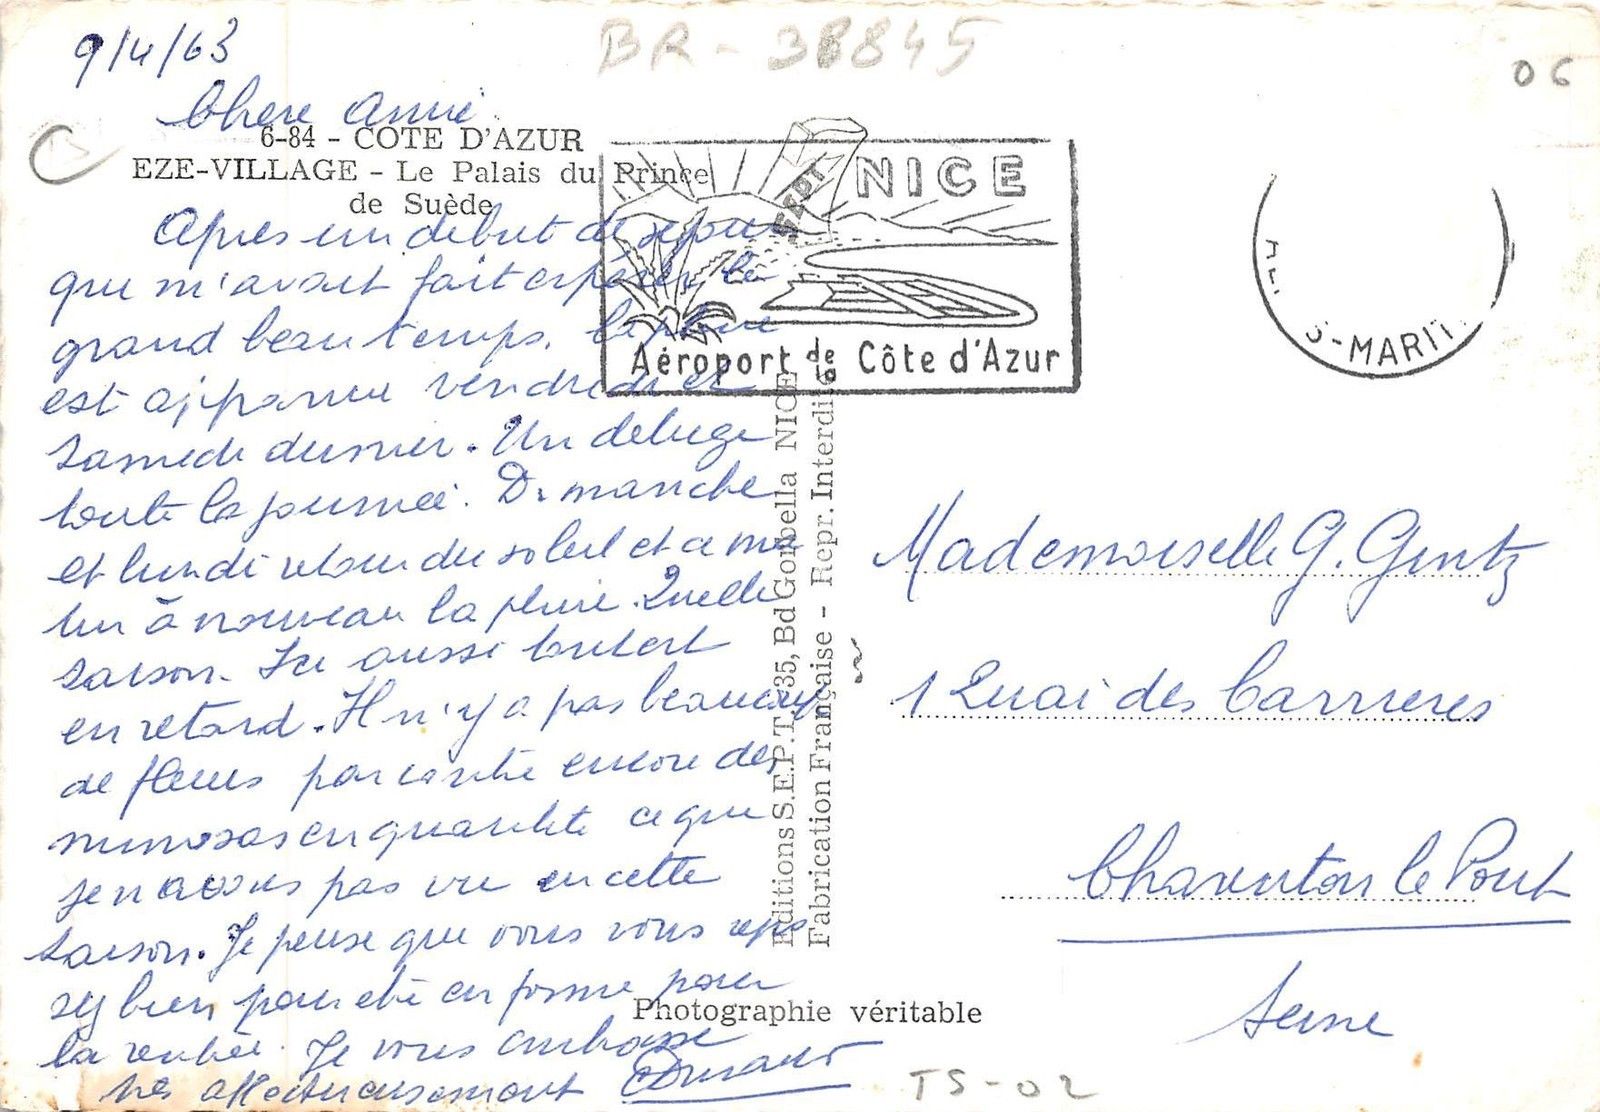 BR - 38845
06
9/4/63
Chere Amie
6-84 - COTE D'AZUR
EZE-VILLAGE - Le Palais du Prince
de Suède
Apres un debut de sejour
que m'avait fait espérer le
grand beau temps, la pluie
est apparue vendredi et
samedi dernier. Un deluge
toute la journeé. Dimanche
et lundi retour du soleil et ce ma
tin à nouveau la pluie. Quelle
saison. Ici aussi tout est
en retard. Il n'y a pas beaucoup
de fleurs par contre encore des
mimosas en quantité ce que
je n'avais pas vu en cette
saison. Je pense que vous vous repo
sez bien pour etre en forme pour
la rentrée. Je vous embrasse
très affectueusement
NICE
SEPT
Aéroport de la Côte d'Azur
S-MARIT
Editions S.E.P.T., 35, Bd Gorbella NICE
Fabrication Française - Repr. Interdite
Mademoiselle G. Gentz
1 Quai des Carrieres
Charenton le Pont
Seine
Photographie véritable
TS-02